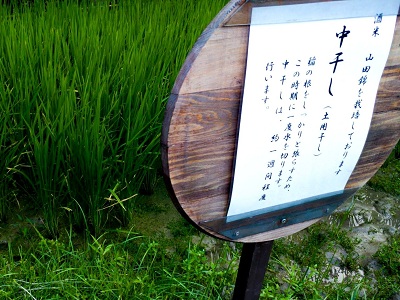 酒米 山田錦を栽培しております
中干し(土用干し)
稲の根をしっかりと張らすため、
この時期に一度水を切ります。
中干しは、約一週間程度
行います。